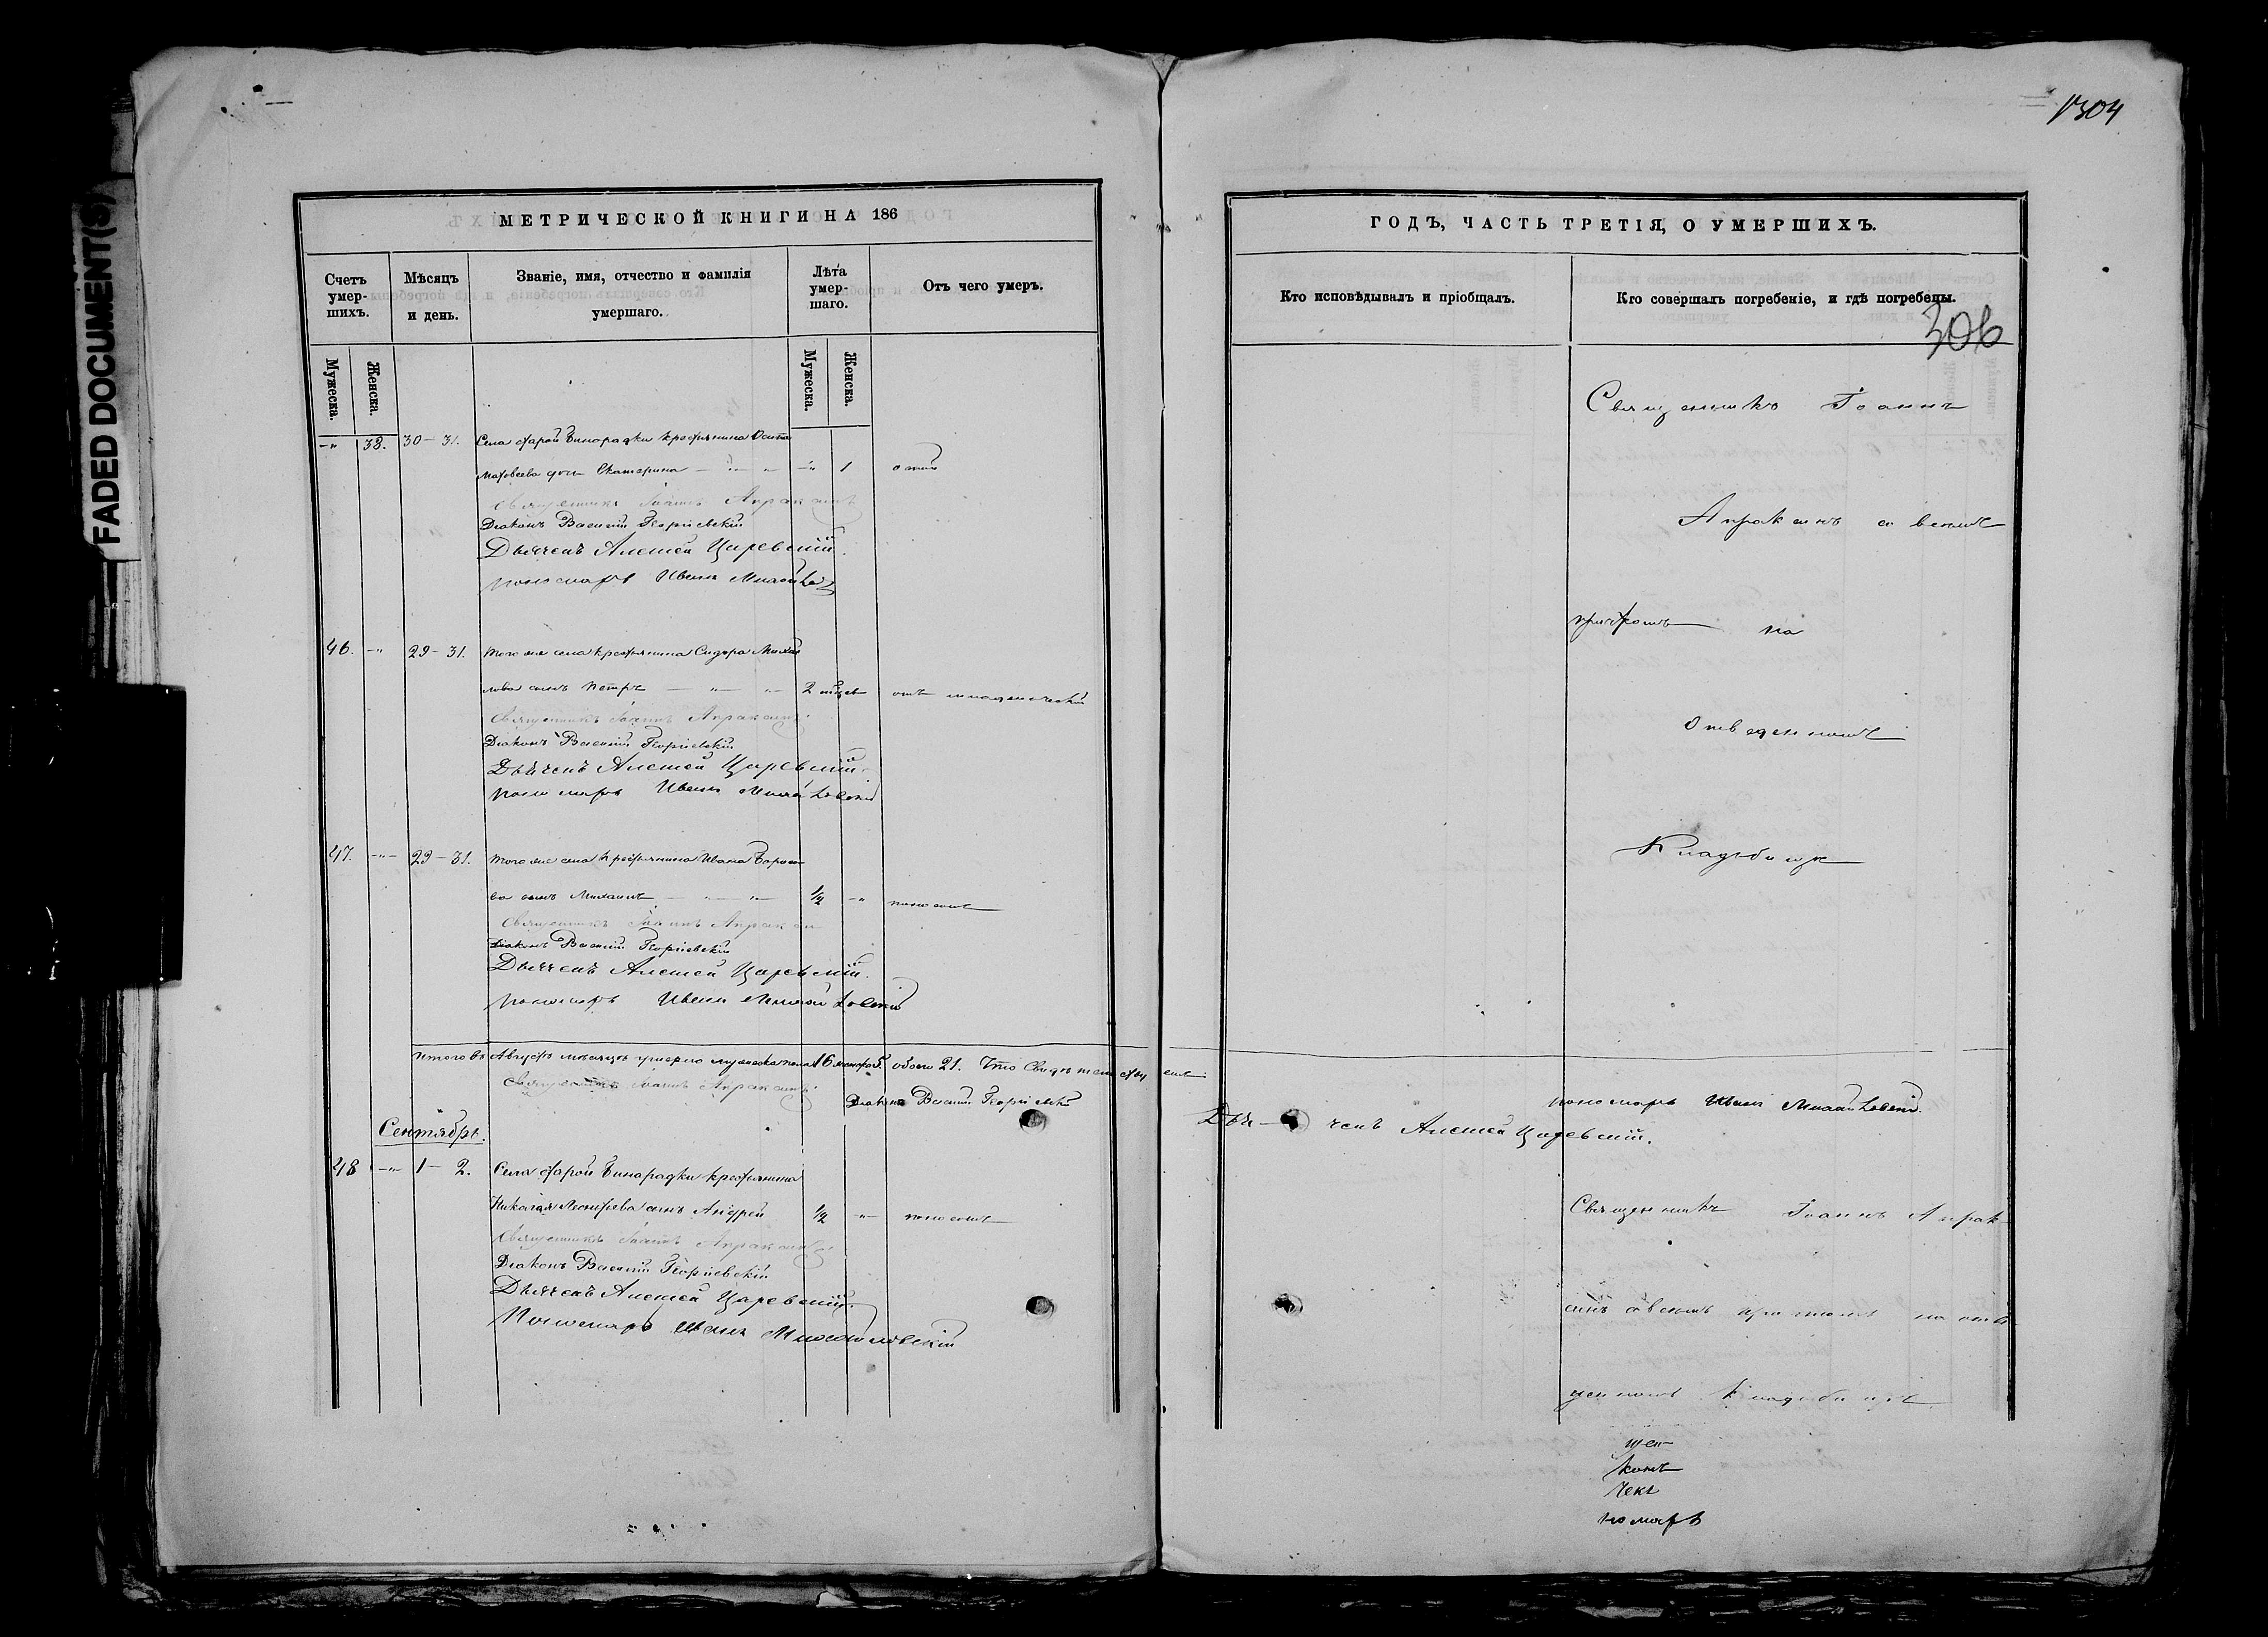 1304
FADED DOCUMENT(S)
МЕТРИЧЕСКОЙ КНИГИ НА 186
Счетъ умер-шихъ.
Мѣсяцъ и день.
Званіе, имя, отчество и фамилія умершаго.
Лѣта умер-шаго.
Отъ чего умеръ.
Мужеска.
Женска.
Мужеска.
Женска.
-"- 38. 30-31. Села Старой Бинарадки крестьянина Осипа
Матвеева дочь Екатерина - " - " -"- 1
Священникъ Іоаннъ Апраксинъ
Діаконъ Василій Георгіевскій
Дьячекъ Алексей Царевскій.
пономарь Иванъ
46. -"- 29-31. того же села крестьянина Сидора Михай
лова сынъ Петръ - " - " - 2 отъ младенческой
Священникъ Іоаннъ Апраксинъ
Діаконъ Василій Георгіевскій
Дьячекъ Алексей Царевскій.
пономарь Иванъ
47. -"- 29-31. того же села крестьянина Ивана
ва сынъ Михаилъ - " - " - 1/2 -"- поносомъ
Священникъ Іоаннъ Апраксинъ
Діаконъ Василій Георгіевскій
Дьячекъ Алексей Царевскій.
пономарь Иванъ
Итого въ Августѣ месяцѣ умерло мужеска пола 16 женска 5. обоего 21. Что свидѣтельствуемъ:
Священникъ Іоаннъ Апраксинъ
Діаконъ Василій Георгіевскій
Сентябрь.
48 -"- 1-2. Села Старой Бинарадки крестьянина
Николая сынъ Андрей 1/2 -"- поносомъ
Священникъ Іоаннъ Апраксинъ
Діаконъ Василій Георгіевскій
Дьячекъ Алексей Царевскій.
Пономарь Иванъ
ГОДЪ, ЧАСТЬ ТРЕТІЯ, О УМЕРШИХЪ.
Кто исповѣдывалъ и пріобщалъ.
Кто совершалъ погребеніе, и гдѣ погребены.
306
Священникъ Іоаннъ
Апраксинъ со всемъ
причтомъ на
Отведенномъ
Кладбище
пономарь Иванъ
Дья- чекъ Алексей Царевскій.
Священникъ Іоаннъ Апрак
синъ со всемъ притомъ на отве
денномъ Кладбище
щен-
конъ
чекъ
номарь